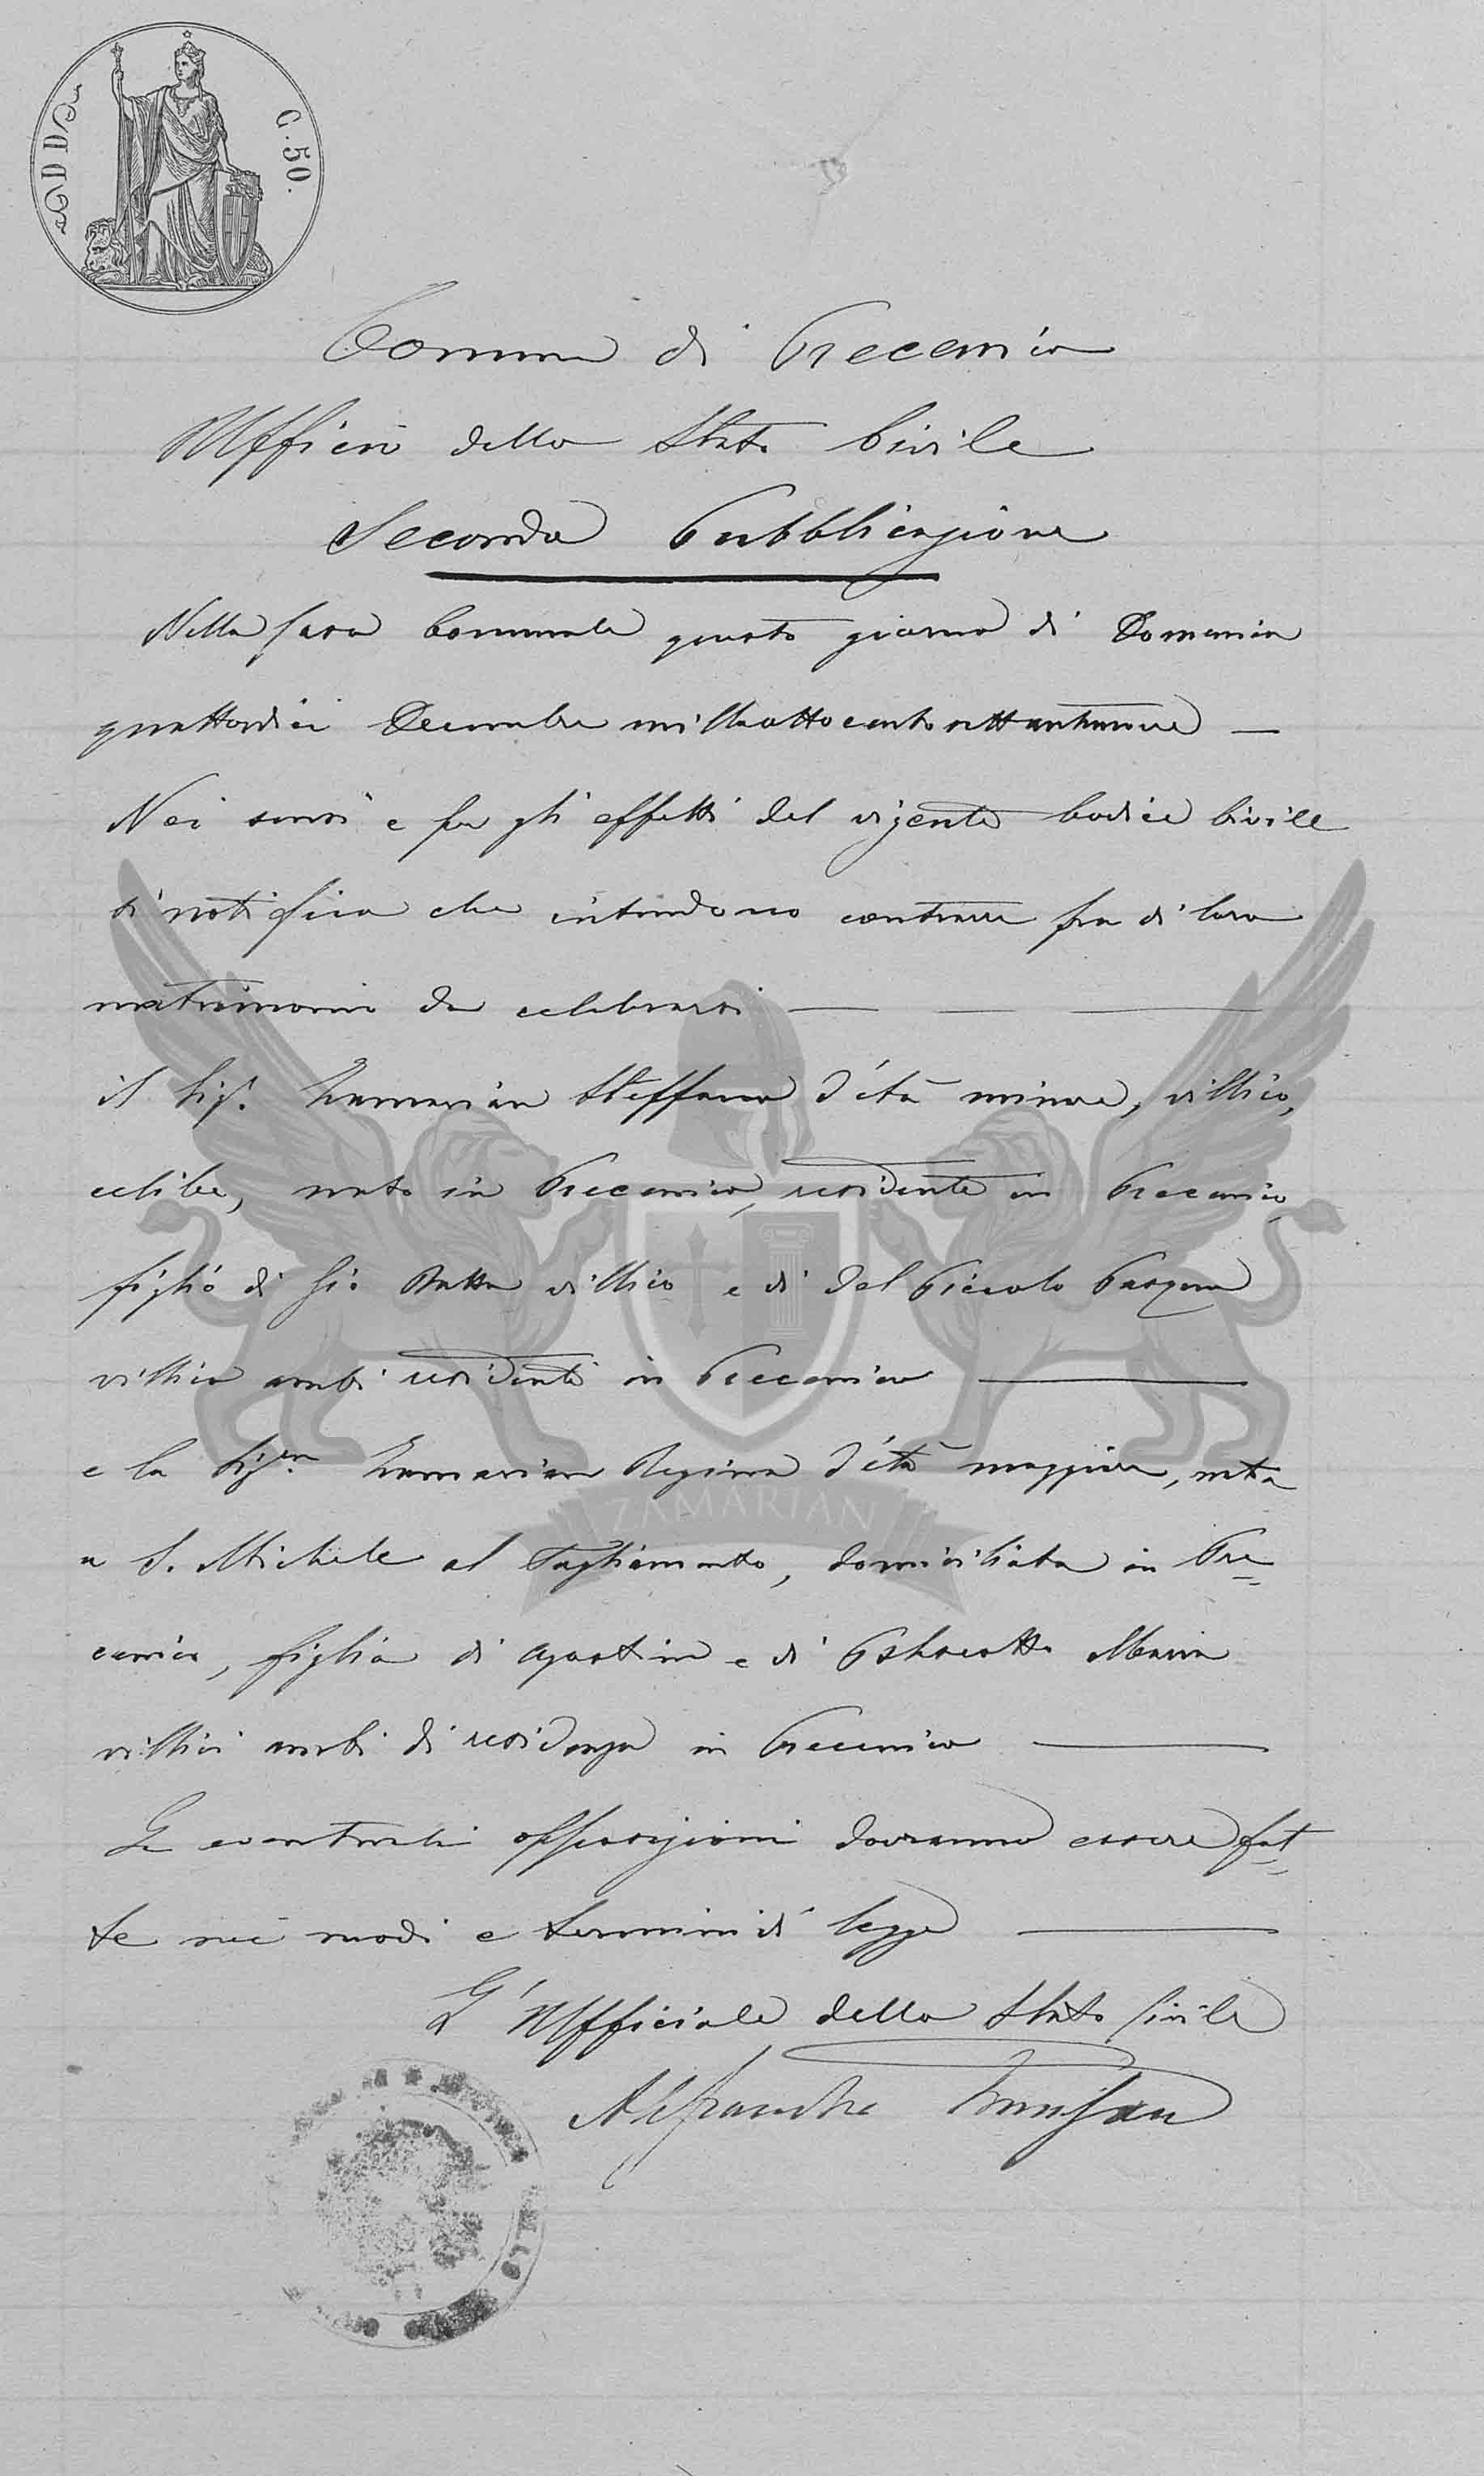 C. 50.
Comune di Precenico
Ufficio dello Stato Civile
Seconda Pubblicazione
Nella Casa Comunale questo giorno di Domenica
quattordici Decembre milleottocentosettantanove —
Nei sensi e per gli effetti del vigente Codice Civile
si notifica che intendono contrarre fra di loro
matrimonio da celebrarsi — — —
il Sigr. Zamarian Steffano d'età minore, villico,
celibe, nato in Precenico, residente in Precenico
figlio di Gio Batta villico e di Del Piccolo Pasqua
villica ambi residenti in Precenico —
e la Sigra. Zamarian Regina d'età maggiore, nata
ZAMARIAN
a S. Michele al Tagliamento, domiciliata in Pre=
cenico, figlia di Agostino e di Maria
villici ambi di residenza in Precenico —
Le eventuali opposizioni dovranno essere fat=
te nei modi e termini di legge —
L'Ufficiale dello Stato Civile